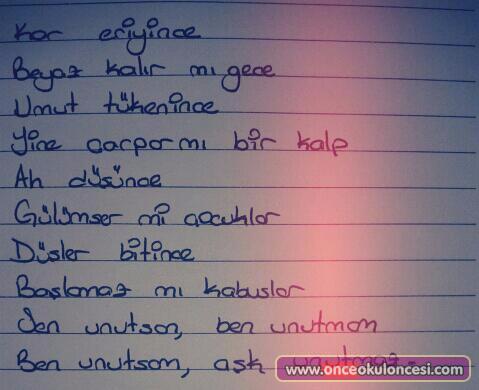 Kar eriyince
Beyaz kalır mı gece
Umut tükenince
Yine çarpar mı bir kalp
Ah düşünce
Gülümser mi çocuklar
Düşler bitince
Başlamaz mı kabuslar
Sen unutsan, ben unutmam
Ben unutsam, aşk unutmaz -
www.onceokuloncesi.com